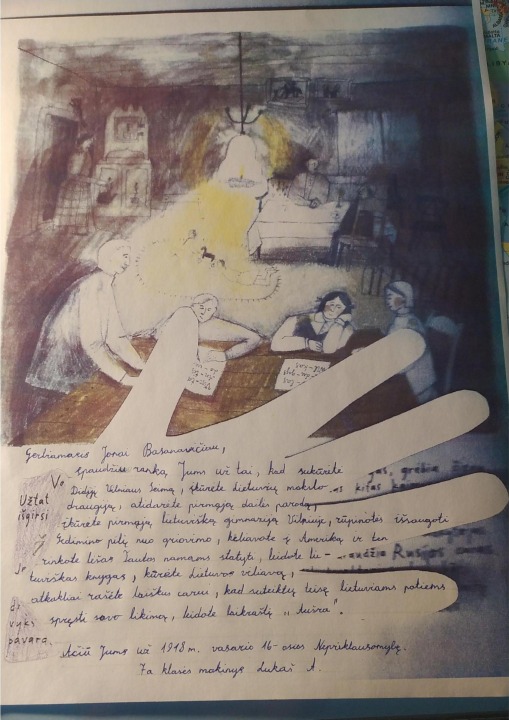 Gerbiamasis Jonai Basanavičiau,
spaudžiu ranką Jums už tai, kad sukūrėte
Didįjį Vilniaus Seimą, įkūrėte Lietuvių mokslo
draugiją, atidarėte pirmąją dailės parodą,
įkūrėte pirmąją lietuvišką gimnaziją Vilniuje, rūpinotės išsaugoti
Gedimino pilį nuo griovimo, keliavote į Ameriką ir ten
rinkote lėšas Tautos namams statyti, leidote lie-
tuviškas knygas, kūrėte Lietuvos vėliavą,
atkakliai rašėte laišką carui, kad suteiktų teisę lietuviams patiems
spręsti savo likimą, leidote laikraštį „Aušra".
Ačiū Jums už 1918 m. vasario 16-osios Nepriklausomybę.
7a klasės mokinys Lukas A.
Užtat
išgirsi
vyks
pavara
Rusijos